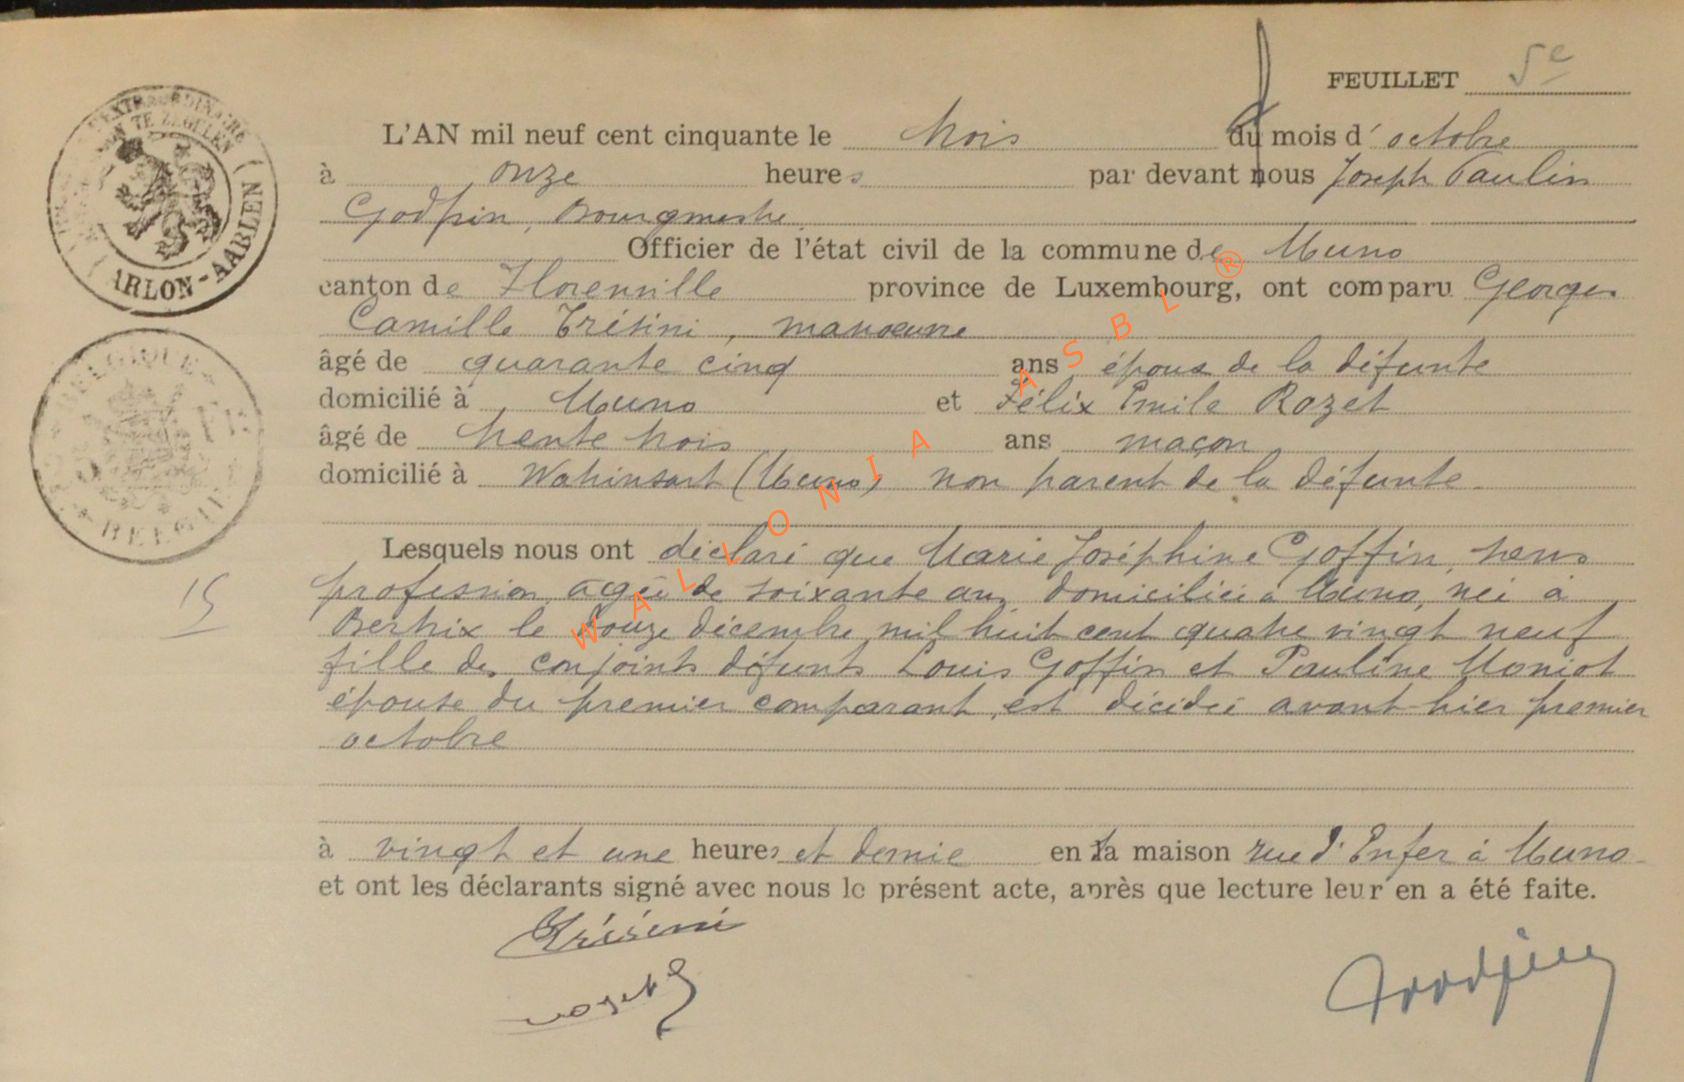 FEUILLET 5e
L'AN mil neuf cent cinquante le trois du mois d'octobre
à onze heures par devant nous Joseph Paulin
Godfrin, Bourgmestre,
Officier de l'état civil de la commune de Muno
canton de Florenville province de Luxembourg, ont comparu Georges
Camille Trésini, manœuvre
âgé de quarante cinq ans époux de la défunte
domicilié à Muno et Félix Emile Rozet
âgé de trente trois ans maçon
domicilié à Wahinsart (Muno) non parent de la défunte
Lesquels nous ont déclaré que Marie Joséphine Goffin, sans
15
profession, âgée de soixante ans, domiciliée à Muno, née à
Bertrix le douze décembre mil huit cent quatre vingt neuf
fille des conjoints défunts Louis Goffin et Pauline Moniot
épouse du premier comparant, est décédée avant-hier premier
octobre
à vingt et une heures et demie en la maison rue d'Enfer à Muno
et ont les déclarants signé avec nous le présent acte, après que lecture leur en a été faite.
Trésini
Rozet
Godfrin
ARLON-AARLEN
BELGIQUE
BELGIE
WALLONIA ASBL ®